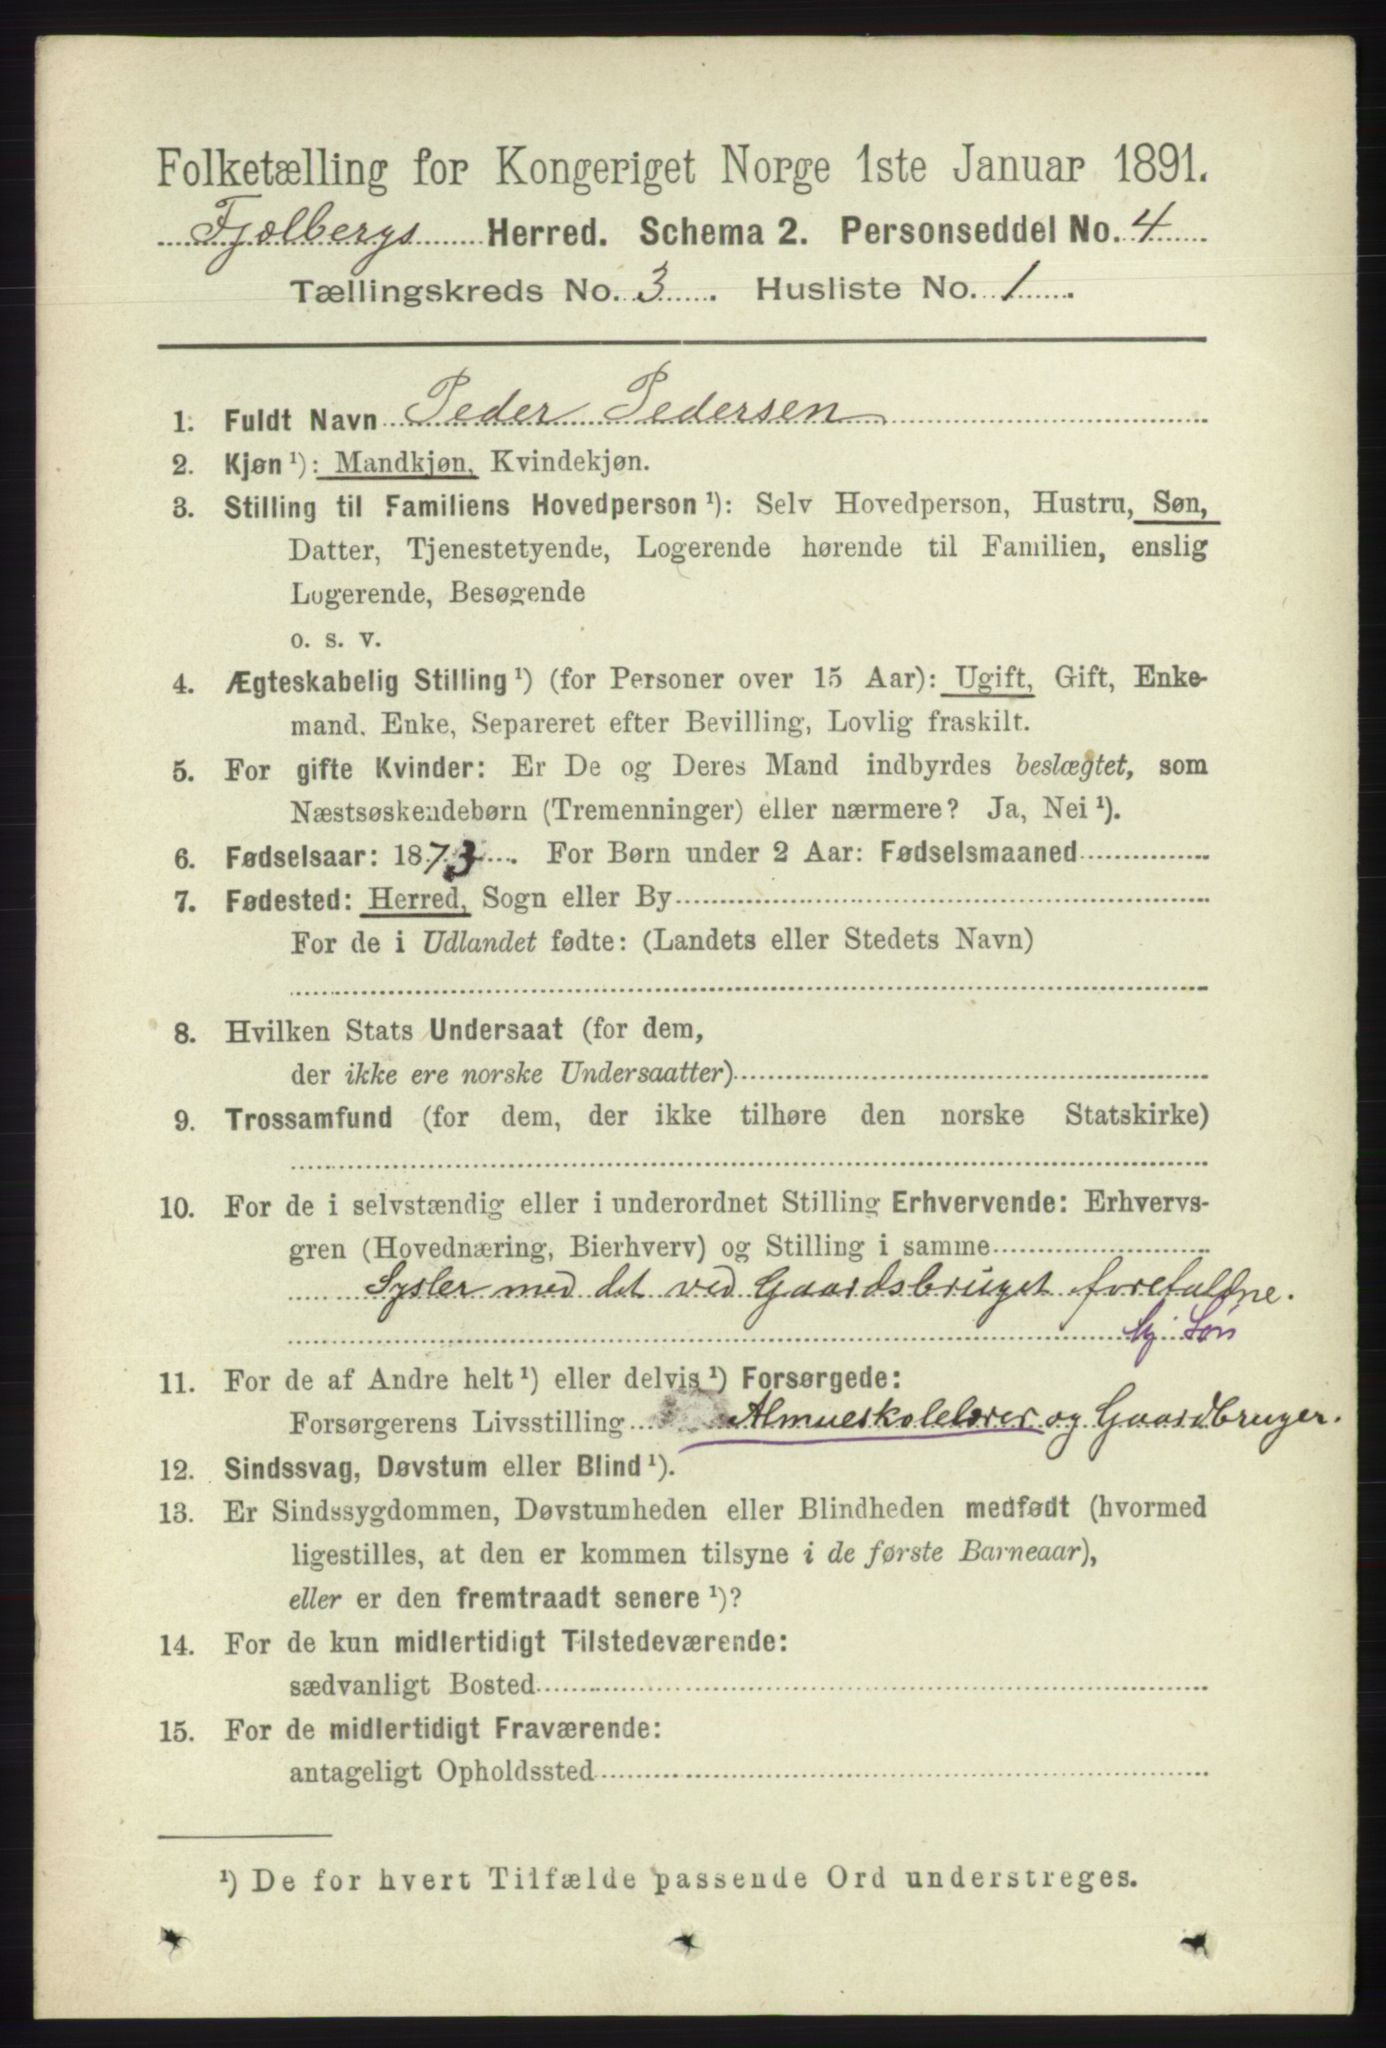 Folketælling for Kongeriget Norge 1ste Januar 1891.
Fjelbergs Herred. Schema 2. Personseddel No. 4
Tællingskreds No. 3. Husliste No. 1.
1. Fuldt Navn Peder Pedersen
2. Kjøn ¹): Mandkjøn, Kvindekjøn.
3. Stilling til Familiens Hovedperson ¹): Selv Hovedperson, Hustru, Søn,
Datter, Tjenestetyende, Logerende hørende til Familien, enslig
Logerende, Besøgende
o. s. v.
4. Ægteskabelig Stilling ¹) (for Personer over 15 Aar): Ugift, Gift, Enke-
mand, Enke, Separeret efter Bevilling, Lovlig fraskilt.
5. For gifte Kvinder: Er De og Deres Mand indbyrdes beslægtet, som
Næstsøskendebørn (Tremenninger) eller nærmere? Ja, Nei ¹).
6. Fødselsaar: 1873. For Børn under 2 Aar: Fødselsmaaned
7. Fødested: Herred, Sogn eller By
For de i Udlandet fødte: (Landets eller Stedets Navn)
8. Hvilken Stats Undersaat (for dem,
der ikke ere norske Undersaatter)
9. Trossamfund (for dem, der ikke tilhøre den norske Statskirke)
10. For de i selvstændig eller i underordnet Stilling Erhvervende: Erhvervs-
gren (Hovednæring, Bierhverv) og Stilling i samme
Sysler med det ved Gaardsbruget forefaldne.
Søn
11. For de af Andre helt ¹) eller delvis ¹) Forsørgede:
Forsørgerens Livsstilling Almueskolelærer og Gaardbruger.
12. Sindssvag, Døvstum eller Blind ¹).
13. Er Sindssygdommen, Døvstumheden eller Blindheden medfødt (hvormed
ligestilles, at den er kommen tilsyne i de første Barneaar),
eller er den fremtraadt senere ¹)?
14. For de kun midlertidigt Tilstedeværende:
sædvanligt Bosted
15. For de midlertidigt Fraværende:
antageligt Opholdssted
¹) De for hvert Tilfælde passende Ord understreges.